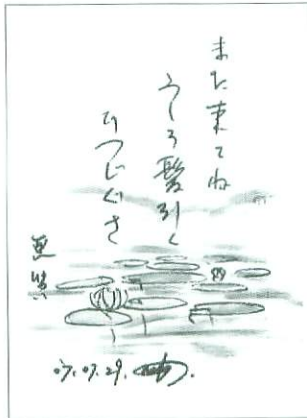 また来てね
うしろ髪引く
ひつじぐさ
07.07.29.